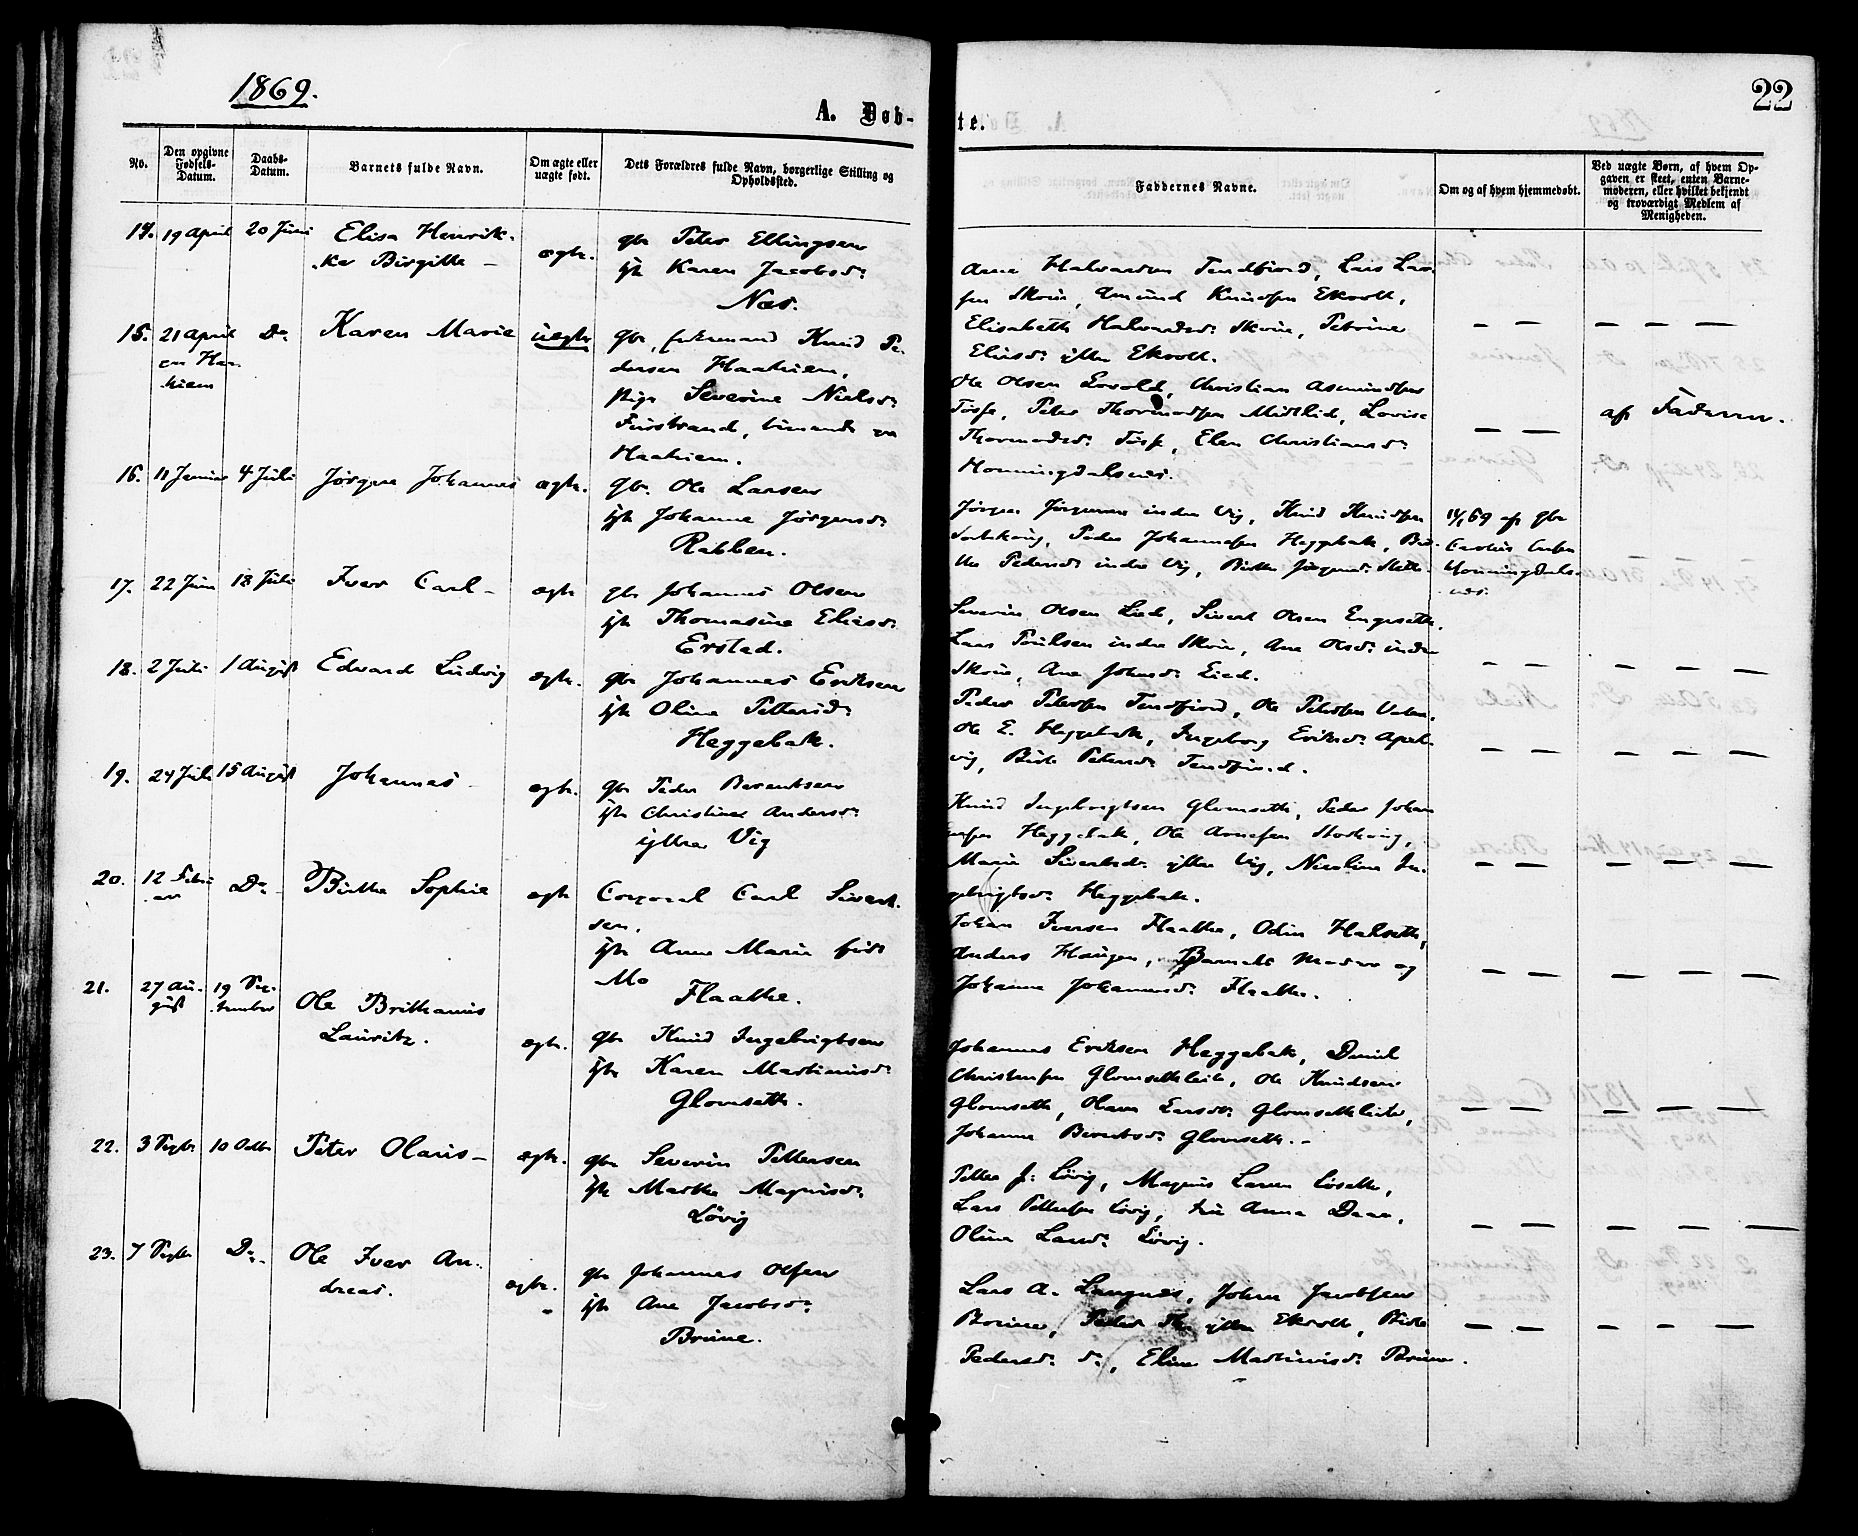 1869.
22
A. Døb-
te.
No.
Den opgivne
Fødsels-
Datum.
Daabs-
Datum.
Barnets fulde Navn.
Om ægte eller
uægte født.
Dets Forældres fulde Navn, borgerlige Stilling og
Opholdssted.
Faddernes Navne.
Om og af hvem hjemmedøbt.
Ved uægte Børn, af hvem Op-
gaven er skeet, enten Barne-
moderen, eller hvilket bekjendt
og troværdigt Medlem af
Menigheden.
14. 19 April 20 Juni Elisa Henrik-
ker Birgitte - ægte. gbr Peter Ellingsen
Karen Jacobsd:
Næs.
Lars Lar-
sen Skoue, Amund Knudsen Ekrolt,
Elisabeth Halvardsd: Skoue, Petrine
Eliasd: yttre Ekrolt.
15. 21 April Do Karen Marie uægte gbr, Knud Pe-
dersen Haahiem,
pige Severine Nielsd:
Haahiem.
Ole Olsen Christian Asmundsen
Peter Thormodsen Midtlid, Lovise
Thormodsd: Elen Christiansd:
Honningdalsnes.
af Faderen.
16. 11 Januar 4 Juli Jørgen Johannes ægte. gbr. Ole Larsen
Johanne Jørgensd:
Rabben.
Jørgen indre Vig, Knud Knudsen
Peder Johannesen Heggebak,
Pedersd: indre Vig,
af gbr
Honningdals-
nes.
17. 22 Juni 18 Juli Iver Carl - ægte gbr Johannes Olsen
Thomasine Eliasd:
Erstad.
Severin Olsen Lied, Sivert Olsen Engesett,
Lars Poulsen indre Skoue, Ane Olsd: indre
Skoue, Ane Johnsd: Lied.
18. 2 Juli 1 August Edvard Ludvig ægte. gbr Johannes Eriksen
Oline Pettersd:
Heggebak.
Peder Petersen Tendfiord, Ole Petersen
Ole E. Heggebak, Ingeborg Eriksd: Apal-
vig, Petersd: Tendfiord.
19. 24 Juli 15 August Johannes - ægte. gbr Peder Berentsen
Christine Andersd:
yttre Vig
Knud Ingebrigtsen Glomseth, Peder Johan-
nesen Heggebak, Ole Arnesen
Marie Sivertsd: yttre Vig, Nicoline In-
gebrigtsd: Heggebak.
20. 12 Febru
ar Do Birthe Sophie ægte Corporal Carl Sivert-
sen.
Anne Marie født
Mo
Flaathe.
Johan Iversen Flaathe, Odin Halseth,
Anders Haugen, Barnets Moder og
Johanne Johannesd: Flaathe.
21. 27 Au-
gust 19 Sep-
tember Ole Brithanius
Lauritz. ægte. gbr Knud Ingebrigtsen
Karen Martinusd:
Glomseth.
Johannes Eriksen Heggebak, Daniel
Christensen Glomsethleite, Ole Knudsen
Glomseth, Larsd: Glomsethleite,
Johanne Berentsd: Glomseth. -
22. 3 Septbr 10 Octbr Peter Olaus - ægte. gbr Severin Pettersen
Marthe Magnusd:
Løvig
Petter J: Løvig, Magnus Larsen
Lars Pettersen Løvig, Anna
Oline Larsd: Løvig.
23. 7 Septbr Do Ole Iver An-
dreas. ægte. gbr Johannes Olsen
Ane Jacobsd:
Brune.
Lars A. Langnes, John Jacobsen
Brune, Peder yttre Ekrolt, Birte
Pedersd: Eline Martinusd: Brune.